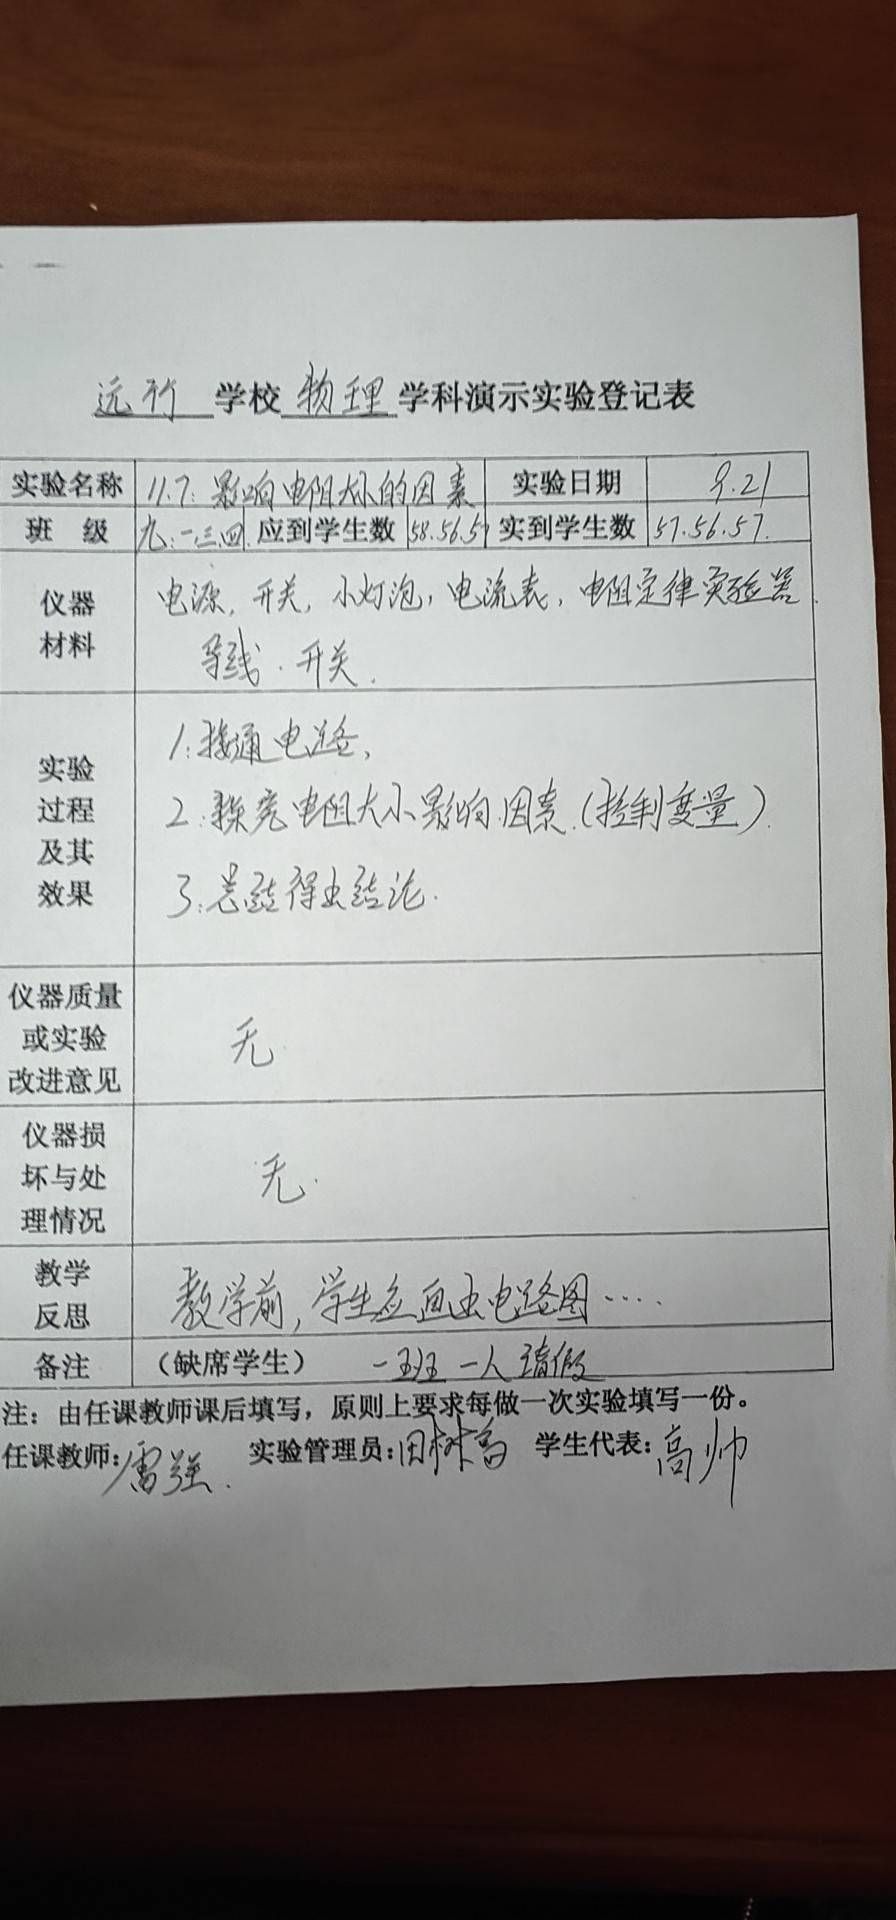 远行学校物理学科演示实验登记表
实验名称 11.7:影响电阻大小的因素 实验日期 9.21
班 级 九:一.三.四 应到学生数 58.56.5 实到学生数 57.56.57.
仪器材料 电源,开关,小灯泡,电流表,电阻定律实验器.
导线.开关.
实验过程及其效果 1.接通电路,
2.探究电阻大小影响因素.(控制变量).
3.总结得出结论.
仪器质量或实验改进意见 无
仪器损坏与处理情况 无.
教学反思 教学前,学生应画出电路图……
备注 (缺席学生) 一班一人请假
注:由任课教师课后填写,原则上要求每做一次实验填写一份。
任课教师:雷强. 实验管理员:田树 学生代表:高帅